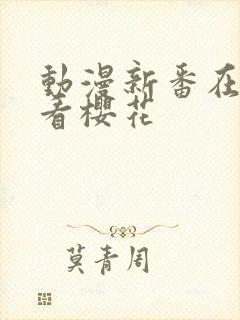 動漫新番在
看櫻花
莫青周